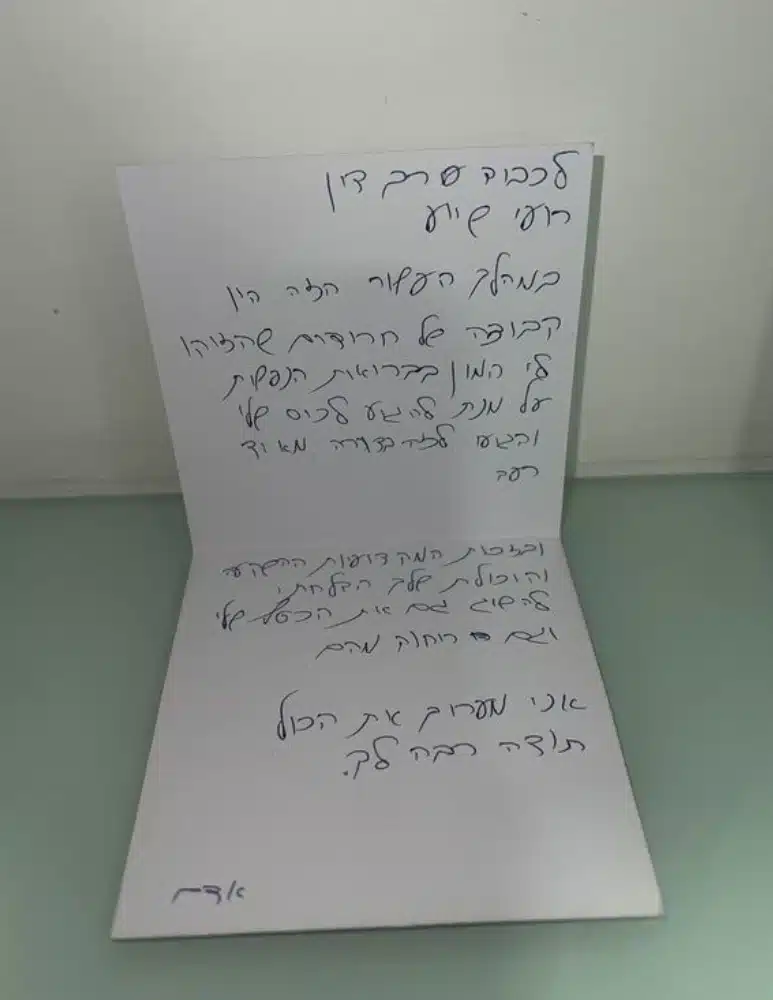 לכבוד עורך דין
רועי שיוע
במהלך העשור הזה הין
קבוצה של חרודים שהזיקו
לי המון בבריאות הנפשית
על מנת להגיע לכיס שלי
והגעי לזה בצורה מאוד
רעב
ובזכות המקצועות ההשקעה
והיכולת שלך הצלחתי
להשיג גם את הכסף שלי
וגם ריחוק מהם
אני מעריך את הכול
תודה רבה לך.
אדם